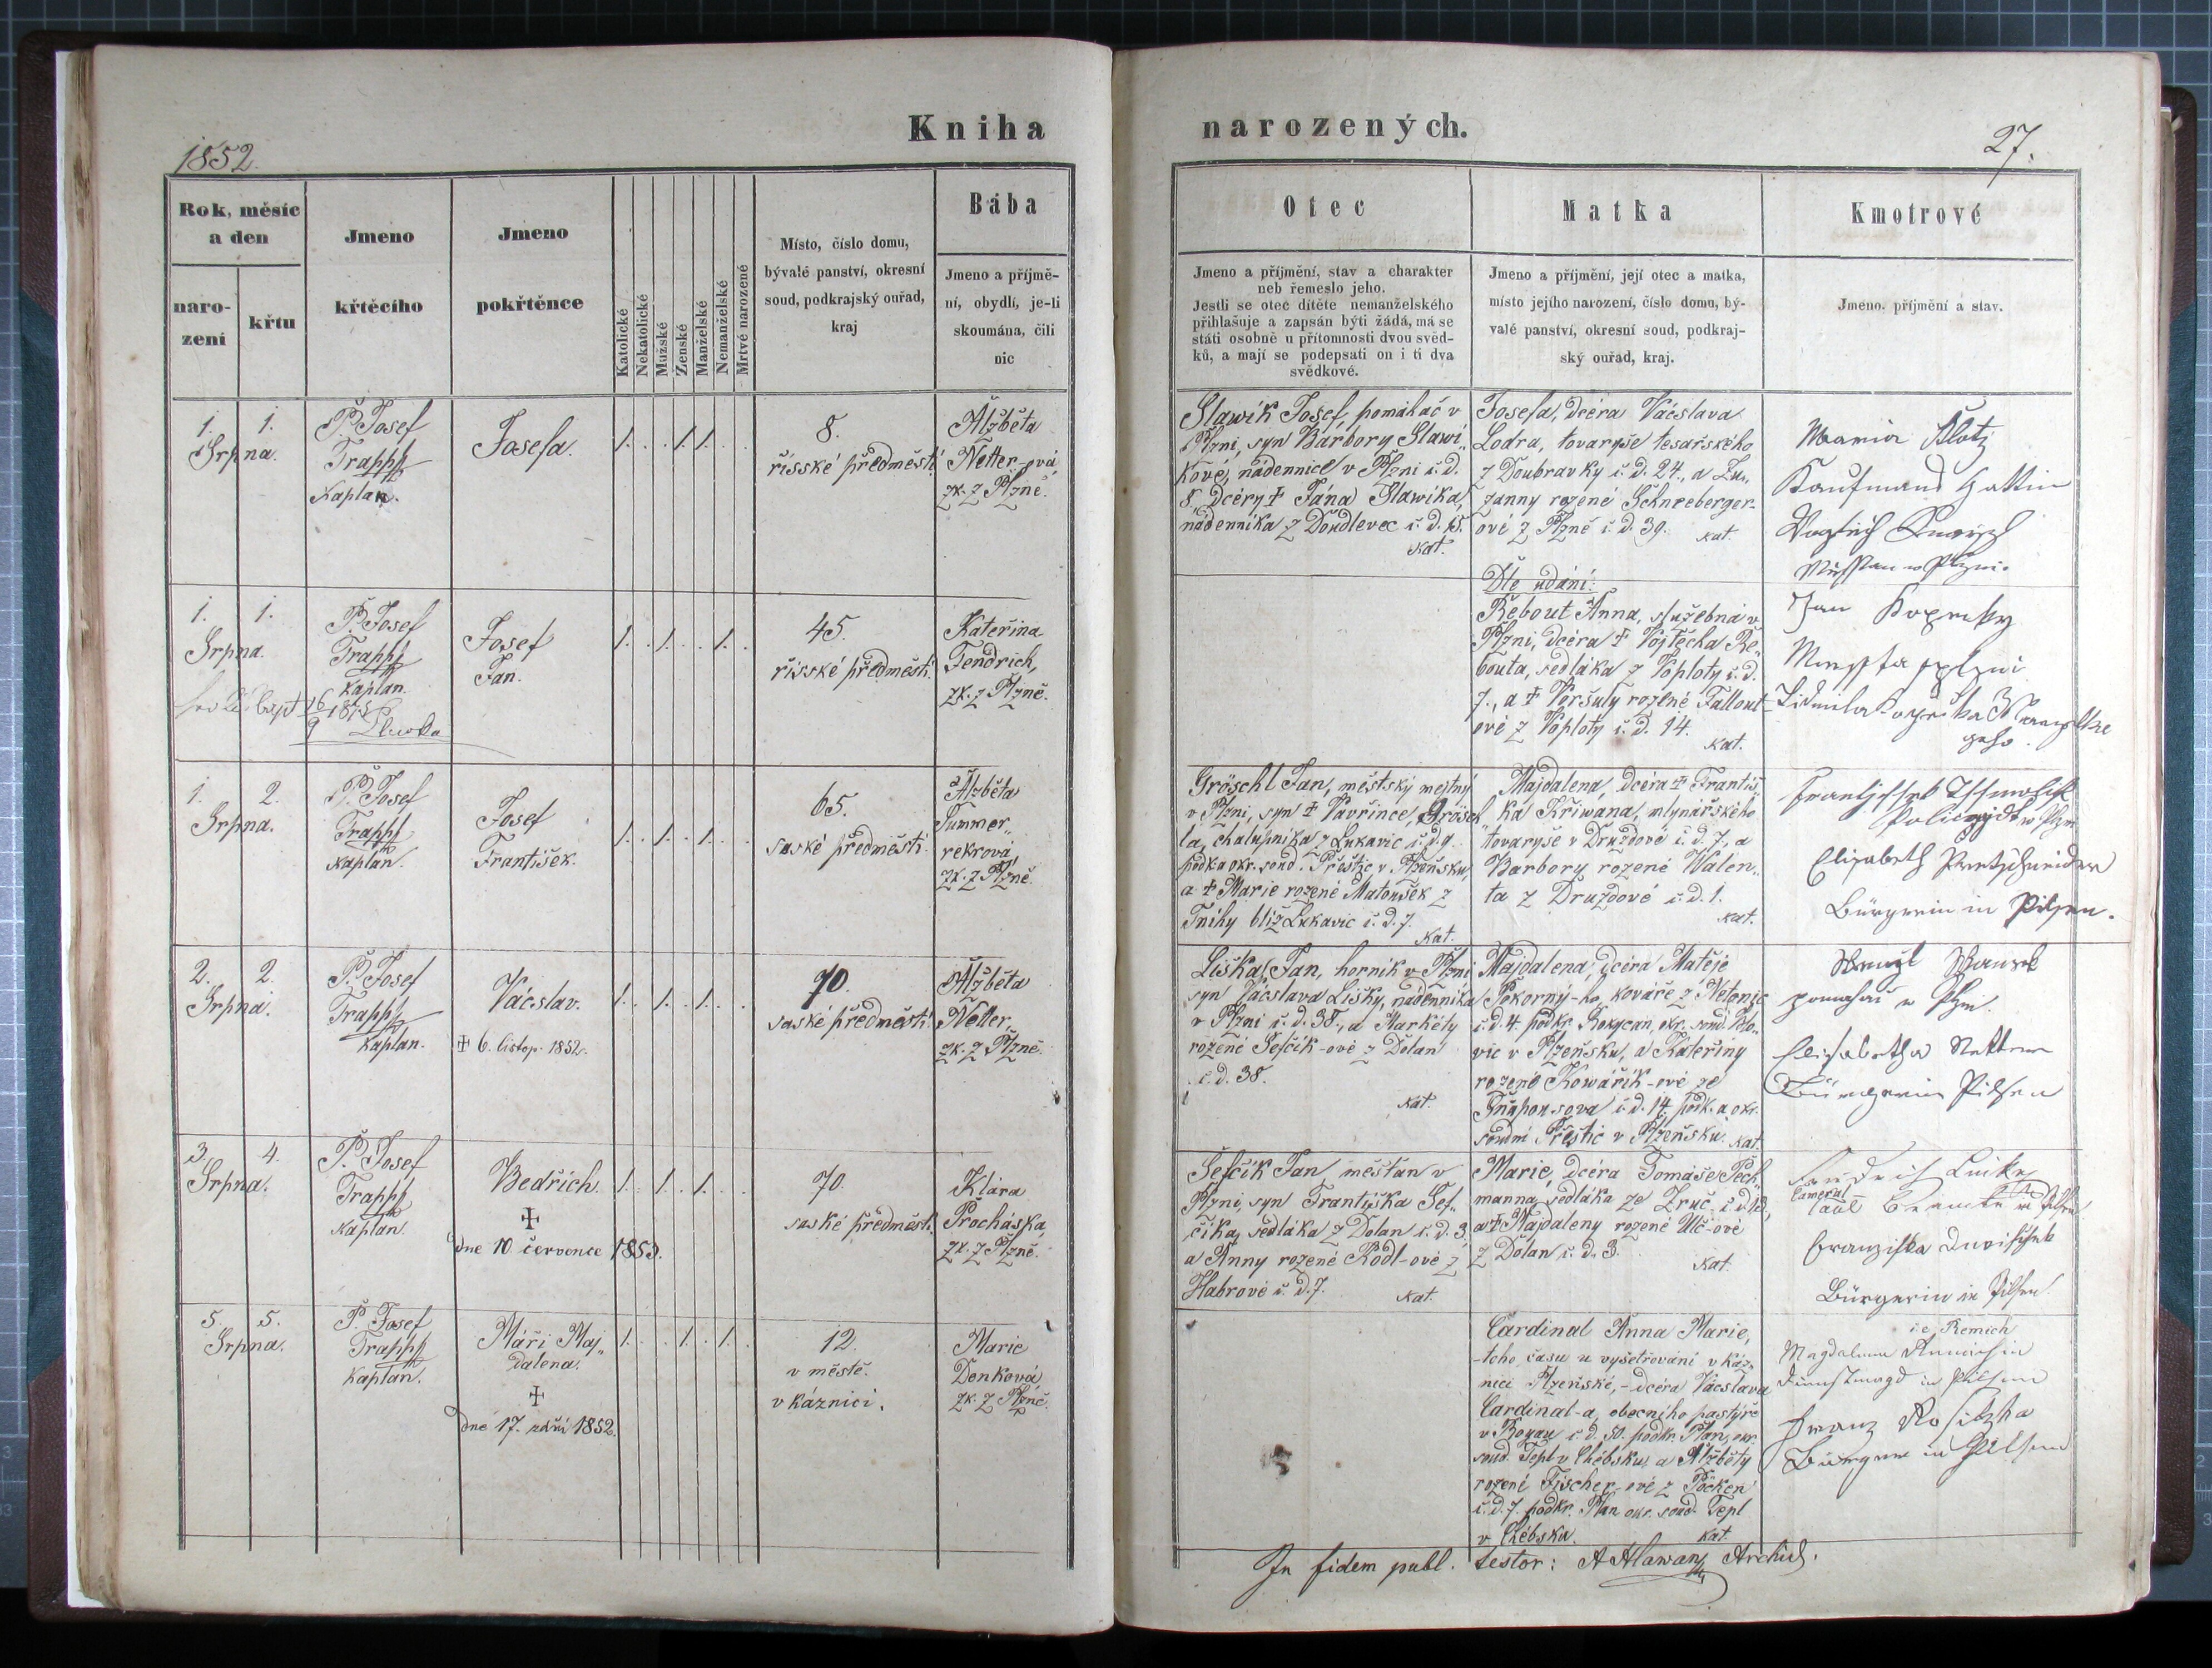 Kniha
narozených.
1852.
27.
Rok, měsíc
a den
naro-
zení
křtu
Jmeno
křtěcího
Jmeno
pokřtěnce
Katolické
Nekatolické
Mužské
Ženské
Manželské
Nemanželské
Mrtvé narozené
Místo, číslo domu,
bývalé panství, okresní
soud, podkrajský ouřad,
kraj
Bába
Jmeno a příjmě-
ní, obydlí, je-li
skoumána, čili
nic
Otec
Jmeno a příjmění, stav a charakter
neb řemeslo jeho.
Jestli se otec dítěte nemanželského
přihlašuje a zapsán býti žádá, má se
státi osobně u přítomnosti dvou svěd-
ků, a mají se podepsati on i ti dva
svědkové.
Matka
Jmeno a příjmění, její otec a matka,
místo jejího narození, číslo domu, bý-
valé panství, okresní soud, podkraj-
ský ouřad, kraj.
Kmotrové
Jmeno. příjmění a stav.
1. 1.
Srpna.
P. Josef
Trappl
Kaplan.
Josefa.
1. . . 1. 1. . .
8.
řísské předměstí.
Alžběta
Netter-ová,
zk. z Plzně.
Slawík Josef, pomahač v
Plzni, syn Barbory Slawí-
kové, nádennice v Plzni č. d.
8. dcéry † Jána Slawíka,
nádenníka z Doudlevec č. d. 15.
Kat.
Josefa, dcéra Václava
Lodra, tovaryše tesařského
z Doubravky č. d. 24., a Zu-
zanny rozené Schneeberger-
ové z Plzně č. d. 39. Kat.
Maria Klotz
Kaufmanns Gattin
1. 1.
Srpna.
P. Josef
Trappl
Kaplan.
Josef
Jan.
1. . 1. . . 1. .
45.
řísské předměstí.
Kateřina
Fendrich,
zk. z Plzně.
Dle udání:
Řebout Anna, služebná v
Plzni, dcéra † Vojtěcha Ře-
bouta, sedláka z Voploty č. d.
7., a † Voršuly rozené Fallout-
ové z Voploty č. d. 14.
Kat.
Jan Kopecky
1. 2.
Srpna.
P. Josef
Trappl
Kaplan.
Josef
František.
1. . 1. . 1. . .
65.
saské předměstí.
Alžběta
Tummer-
rekrová
zk. z Plzně.
Gröschl Jan, městský mejtný
v Plzni, syn † Vavřince Grösch-
la, chalupníka z Lukavic č. d. 9.
podka okr. soud. Přeštic, v Plzeňsku,
a † Marie rozené Matoušek z
Snihy blíž Lukavic č. d. 7.
Kat.
Majdalena, dcéra † Františ-
ka Křiwana, mlynářského
tovaryše v Druzdové č. d. 7., a
Barbory rozené Walen-
ta z Druzdové č. d. 1.
Kat.
Elisabeth
Bürgerin in Pilsen.
2. 2.
Srpna.
P. Josef
Trappl
Kaplan.
Václav.
† 6. listop. 1852.
1. . 1. . 1. . .
70.
saské předměstí.
Alžběta
Netter,
zk. z Plzně.
Liška Jan, horník v Plzni
syn Václava Lišky, nádenníka
v Plzni č. d. 38., a Markéty
rozené Šefčík-ové z Dolan
č. d. 38.
Kat.
Majdalena, dcéra Matěje
Pokorný-ho, kováře z
č. d. 4. podkr. Rokycan, okr. soud. Blo-
vic v Plzeňsku, a Kateřiny
rozené Kowářík-ové ze
č. d. 14. podk. a okr.
soudní Přeštic v Plzeňsku. Kat.
pomahač v Plzni.
Elisabetha Netter
Bürgerin Pilsen
3. 4.
Srpna.
P. Josef
Trappl
Kaplan.
Bedřich.
†
dne 10 července 1853.
1. . 1. . 1. . .
70.
saské předměstí.
Klára
Procháska,
zk. z Plzně.
Šefčík Jan měšťan v
Plzni, syn Františka Šef-
číka, sedláka z Dolan č. d. 3.
a Anny rozené Rodl-ové z
Habrové č. d. 7. Kat.
Marie, dcéra Tomáše Pech-
manna, sedláka ze Zruč č. d. 12,
a † Majdaleny rozené Ulč-ové
z Dolan č. d. 3.
Kat.
Cameral
Franziska
Bürgerin in Pilsen.
5. 5.
Srpna.
P. Josef
Trappl
Kaplan.
Máři Maj-
dalena.
†
dne 17. září 1852.
1. . . 1. . 1. .
12.
v městě.
v káznici.
Marie
Denková
zk. z Plzně.
Cardinal Anna Marie,
-toho času u vyšetřování v káz-
nici Plzeňské,- dcéra Václava
Cardinal-a, obecního pastýře
v č. d. 50. podkr. Plan, okr.
soud. Tepl v Chébsku, a Alžběty
rozené Fischer-ové z
č. d. 7. podkr. Plan okr. soud. Tepl
v Chébsku. Kat.
Magdalena
Dienstmagd in Pilsen
Franz
Bürger in Pilsen
In fidem publ. testor: A Hlawan Archid.